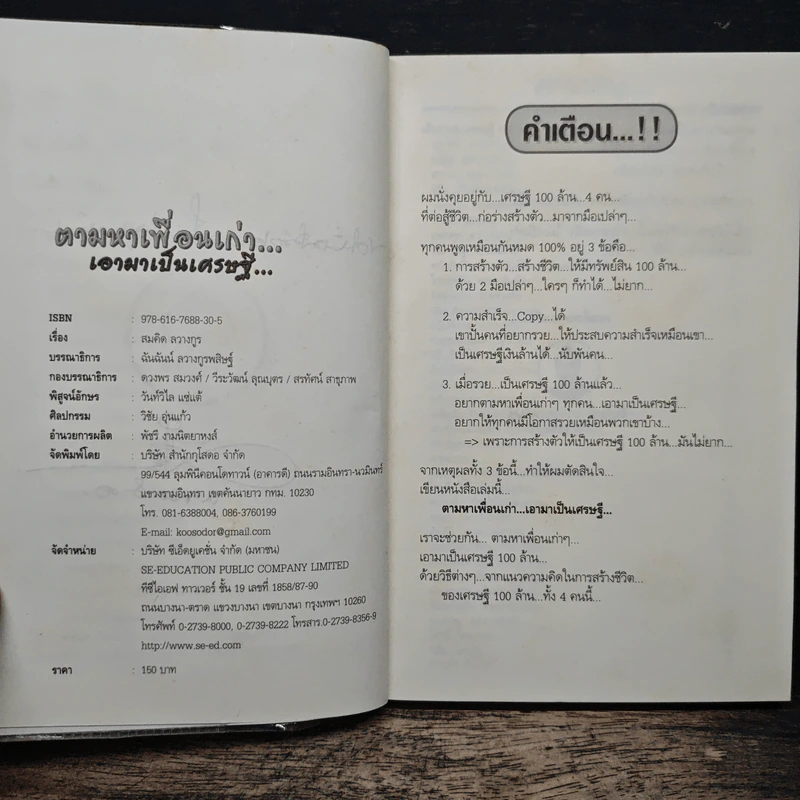 ตามหาเพื่อนเก่า...
เอามาเป็นเศรษฐี...
ISBN : 978-616-7688-30-5
เรื่อง : สมคิด ลวางกูร
บรรณาธิการ : ฉันฉันน์ ลวางกูรพสิษฐ์
กองบรรณาธิการ : ดวงพร สมวงศ์ / วีระวัฒน์ ลุณบุตร / สรทัศน์ สาขุภาพ
พิสูจน์อักษร : วันทวิไล แซ่แต้
ศิลปกรรม : วิชัย อุ่นแก้ว
อำนวยการผลิต : พัชรี งามนิตยาหงส์
จัดพิมพ์โดย : บริษัท สำนักกูโสดอ จำกัด
99/544 ลุมพินีคอนโดทาวน์ (อาคารดี) ถนนรามอินทรา-นวมินทร์
แขวงรามอินทรา เขตคันนายาว กทม. 10230
โทร. 081-6388004, 086-3760199
E-mail: koosodor@gmail.com
จัดจำหน่าย : บริษัท ซีเอ็ดยูเคชั่น จำกัด (มหาชน)
SE-EDUCATION PUBLIC COMPANY LIMITED
ทีซีไอเอฟ ทาวเวอร์ ชั้น 19 เลขที่ 1858/87-90
ถนนบางนา-ตราด แขวงบางนา เขตบางนา กรุงเทพฯ 10260
โทรศัพท์ 0-2739-8000, 0-2739-8222 โทรสาร.0-2739-8356-9
http://www.se-ed.com
ราคา : 150 บาท
คำเตือน...!!
ผมนั่งคุยอยู่กับ...เศรษฐี 100 ล้าน...4 คน...
ที่ต่อสู้ชีวิต...ก่อร่างสร้างตัว...มาจากมือเปล่าๆ...
ทุกคนพูดเหมือนกันหมด 100% อยู่ 3 ข้อคือ...
1. การสร้างตัว...สร้างชีวิต...ให้มีทรัพย์สิน 100 ล้าน...
ด้วย 2 มือเปล่าๆ...ใครๆ ก็ทำได้...ไม่ยาก...
2. ความสำเร็จ...Copy...ได้
เขาปั้นคนที่อยากรวย...ให้ประสบความสำเร็จเหมือนเขา...
เป็นเศรษฐีเงินล้านได้...นับพันคน...
3. เมื่อรวย...เป็นเศรษฐี 100 ล้านแล้ว...
อยากตามหาเพื่อนเก่าๆ ทุกคน...เอามาเป็นเศรษฐี...
อยากให้ทุกคนมีโอกาสรวยเหมือนพวกเขาบ้าง...
=> เพราะการสร้างตัวให้เป็นเศรษฐี 100 ล้าน...มันไม่ยาก...
จากเหตุผลทั้ง 3 ข้อนี้...ทำให้ผมตัดสินใจ...
เขียนหนังสือเล่มนี้...
ตามหาเพื่อนเก่า...เอามาเป็นเศรษฐี...
เราจะช่วยกัน... ตามหาเพื่อนเก่าๆ...
เอามาเป็นเศรษฐี 100 ล้าน...
ด้วยวิธีต่างๆ...จากแนวความคิดในการสร้างชีวิต...
ของเศรษฐี 100 ล้าน...ทั้ง 4 คนนี้...